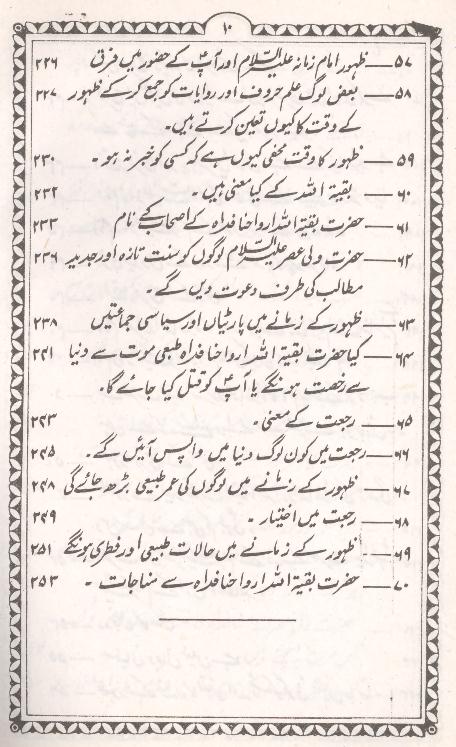 ۱۰
۵۷ــ ظہور امام زمانہ علیہ السلام اور آپؑ کے حضور میں فرق ۲۲۶
۵۸ــ بعض لوگ علم حروف اور روایات کو جمع کرکے ظہور ۲۲۷
کے وقت کا کیوں تعین کرتے ہیں۔
۵۹ــ ظہور کا وقت مخفی کیوں ہے کہ کسی کو خبر نہ ہو۔ ۲۳۰
۶۰ــ بقیۃ اللہ کے کیا معنی ہیں۔ ۲۳۲
۶۱ــ حضرت بقیۃ اللہ ارواحنا فداہ کے اصحاب کے نام ۲۳۳
۶۲ــ حضرت ولی عصر علیہ السلام لوگوں کو سنت تازہ اور جدید ۲۳۶
مطالب کی طرف دعوت دیں گے۔
۶۳ــ ظہور کے زمانے میں پارٹیاں اور سیاسی جماعتیں ۲۳۸
۶۴ــ کیا حضرت بقیۃ اللہ ارواحنا فداہ طبعی موت سے دنیا ۲۴۱
سے رخصت ہونگے یا آپؑ کو قتل کیا جائے گا۔
۶۵ــ رجعت کے معنی۔ ۲۴۳
۶۶ــ رجعت میں کون لوگ دنیا میں واپس آئیں گے۔ ۲۴۵
۶۷ــ ظہور کے زمانے میں لوگوں کی عمر طبیعی بڑھ جائے گی ۲۴۸
۶۸ــ رجعت میں اختیار۔ ۲۴۹
۶۹ــ ظہور کے زمانے میں حالات طبیعی اور فطری ہونگے ۲۵۱
۷۰ــ حضرت بقیۃ اللہ ارواحنا فداہ سے مناجات۔ ۲۵۳